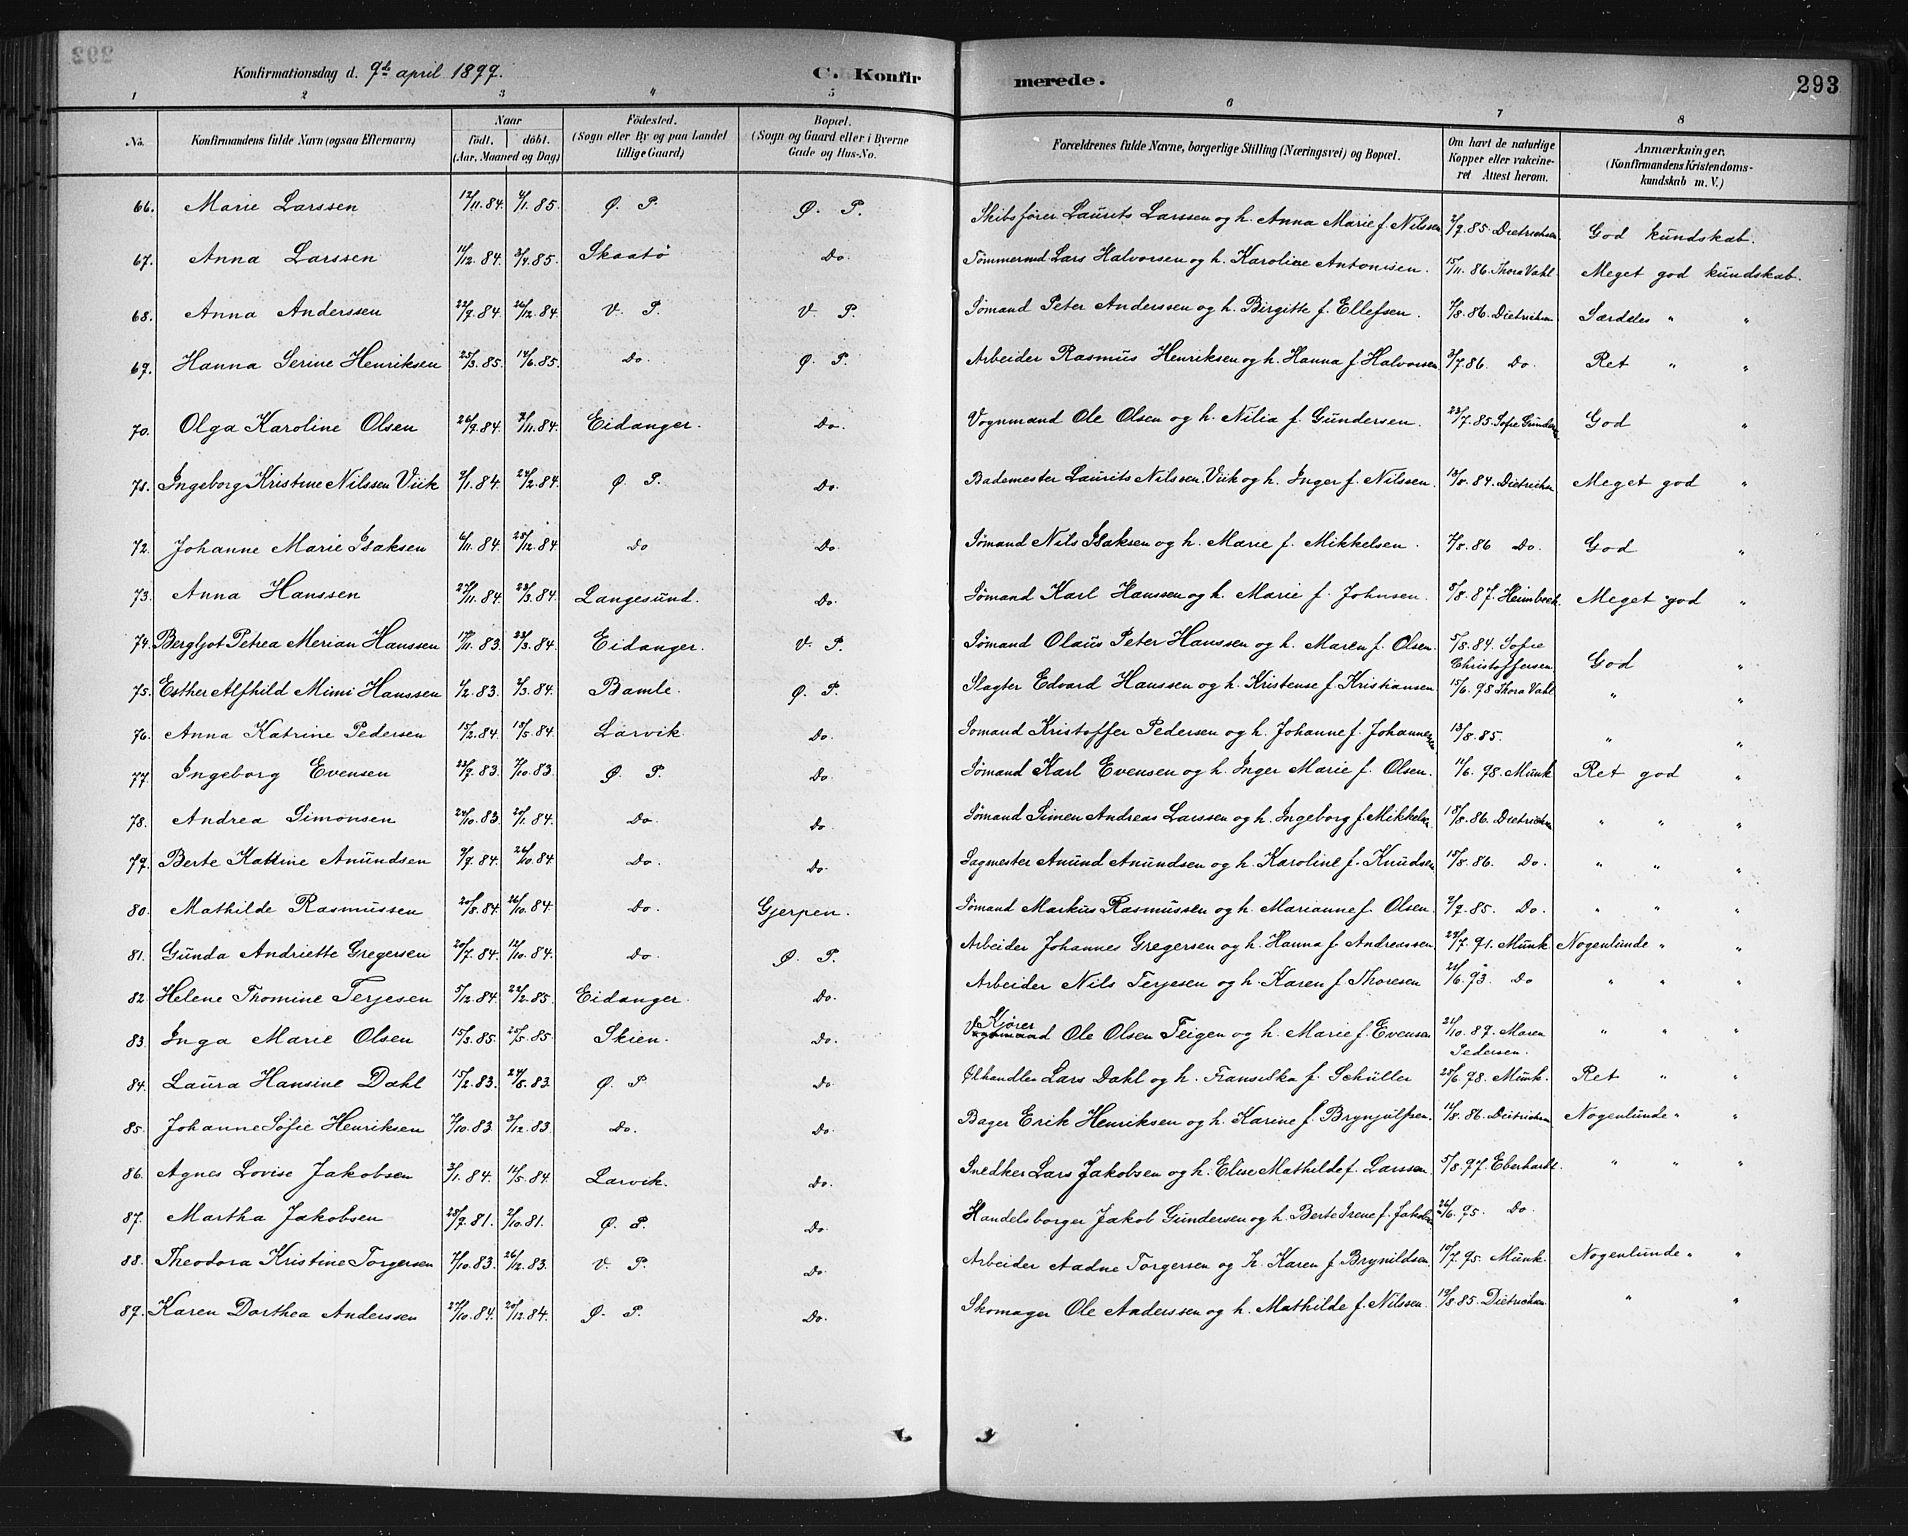 Konfirmationsdag d. 9de april 1899.
C. Konfirmerede.
293
1 2 3 4 5 6 7 8
No. Konfirmandens fulde Navn (ogsaa Efternavn) Naar födt. döbt. (Aar, Maaned og Dag) Födested. (Sogn eller By og paa Landet tillige Gaard) Bopæl. (Sogn og Gaard eller i Byerne Gade og Hus-No. Forældrenes fulde Navne, borgerlige Stilling (Næringsvei) og Bopæl. Om havt de naturlige Kopper eller vakcineret Attest herom. Anmærkninger. (Konfirmandens Kristendomskundskab m. V.)
66. Marie Larssen 12/11.84. 4/1.85. Ø. P. Ø. P. Skibsfører Laurits Larssen og h. Anna Marie f. Nilssen 2/9.85 Dietrichsen God kundskab.
67. Anna Larssen 11/12.84. 3/4.85. Skaatø Do. Tømmermd Lars Halvorsen og h. Karoline Antonisen. 15/11.86. Thora Vahl Meget god kundskab.
68. Anna Anderssen 22/9.84. 26/12.84 V. P. V. P. Sømand Peter Anderssen og h. Birgitte f. Ellefsen. 7/8.86. Dietrichsen Særdeles " "
69. Hanna Serine Henriksen 25/3.85. 14/6.85. Do. Ø. P. Arbeider Rasmus Henriksen og h. Hanna f. Halvorsen 3/7.86. Do. Ret " "
70. Olga Karoline Olsen 26/9.84. 2/11.84. Eidanger. Do. Vognmand Ole Olsen og h. Nilia f. Gundersen. 23/7.85. Sofie Gundersen God "
71. Ingeborg Kristine Nilssen Viik 9/1.84. 24/2.84. Ø. P. Do. Bademester Laurits Nilssen Viik og h. Inger f. Nilssen. 13/8.84. Dietrichsen Meget god "
72. Johanne Marie Isaksen 6/11.84. 25/12.84 Do Do. Sømand Nils Isaksen og h. Marie f. Mikkelsen. 7/8.86 Do. God "
73. Anna Hanssen 27/11.84. 23/3.84. Langesund. Do. Sømand Karl Hanssen og h. Marie f. Johnsen. 8/8.87. Heimbeck. Meget god "
74. Bergljot Petrea Merian Hanssen 17/11.83. 23/3.84. Eidanger. V. P. Sømand Olaus Peter Hanssen og h. Maren f. Olsen. 5/8.84. Sofie Christoffersen God "
75. Esther Alfhild Mimi Hanssen 1/2.83. 2/3.84. Bamle. Ø. P. Slagter Edvard Hanssen og h. Kristense f. Kristiansen 15/6.98 Thora Vahl " "
76. Anna Katrine Pedersen 15/2.84. 18/5.84. Larvik Do. Sømand Kristoffer Pedersen og h. Johanne f. Johannesen 13/8.85. " "
77. Ingeborg Evensen 23/9.83. 7/10.83. Ø. P. Do. Sømand Karl Evensen og h. Inger Marie f. Olsen. 11/6.98. Munk Ret god "
78. Andrea Simonsen 24/10.83. 20/1.84. Do. Do. Sømand Simen Andreas Larssen og h. Ingeborg f. Mikkelsen. 18/8.86. Dietrichsen " " "
79. Berte Katrine Anundsen 9/9.84. 26/10.84 Do. Do. Sagmester Anund Anundsen og h. Karoline f. Knudsen 15/8.86. Do. " " "
80. Mathilde Rasmussen 20/8.84. 26/10.84. Do. Gjerpen. Sømand Markus Rasmussen og h. Marianne f. Olsen. 2/9.85. Do. " " "
81. Gunda Andriette Gregersen 20/7.84. 12/10.84. Do. Ø. P. Arbeider Johannes Gregersen og h. Hanna f. Andreassen 29/7.91. Munk Nogenlunde " "
82. Helene Thomine Terjesen 5/12.84. 22/2.85. Eidanger. Do. Arbeider Nils Terjesen og h. Karen f. Thoresen 21/6.93. Do " " "
83. Inga Marie Olsen 15/3.85. 25/5.85. Skien. Do. Kjører Ole Olsen Teigen og h. Marie f. Evensen 21/10.89. Maren Pedersen. " " "
84. Laura Hansine Dahl 15/2.83. 24/5.83. Ø. P. Do. Ølhandler Lars Dahl og h. Fransiska f. Schüller 25/6.98. Munk. Ret " "
85. Johanne Sofie Henriksen 7/10.83. 3/12.83. Do. Do. Bager Erik Henriksen og h. Karine f. Brynjulfsen. 11/8.86. Dietrichsen Nogenlunde " "
86. Agnes Lovise Jakobsen 3/1.84. 11/5.84. Larvik. Do. Snedker Lars Jakobsen og h. Elise Mathilde f. Larssen 5/8.97. Eberhardt. " " "
87. Martha Jakobsen 28/9.81. 2/10.81. Ø. P. Do. Handelsborger Jakob Gundersen og h. Berte Irene f. Jakobsen 26/6.95. Do
88. Theodora Kristine Torgersen 7/10.83. 26/12.83. V. P. Do. Arbeider Aadne Torgersen og h. Karen f Brynildsen 10/7.95. Munk. Nogenlunde " "
89. Karen Dorthea Anderssen 27/10.84. 20/12.84. Ø. P. Do. Skomager Ole Anderssen og h. Mathilde f. Nilssen. 19/8.85. Dietrichsen. " "